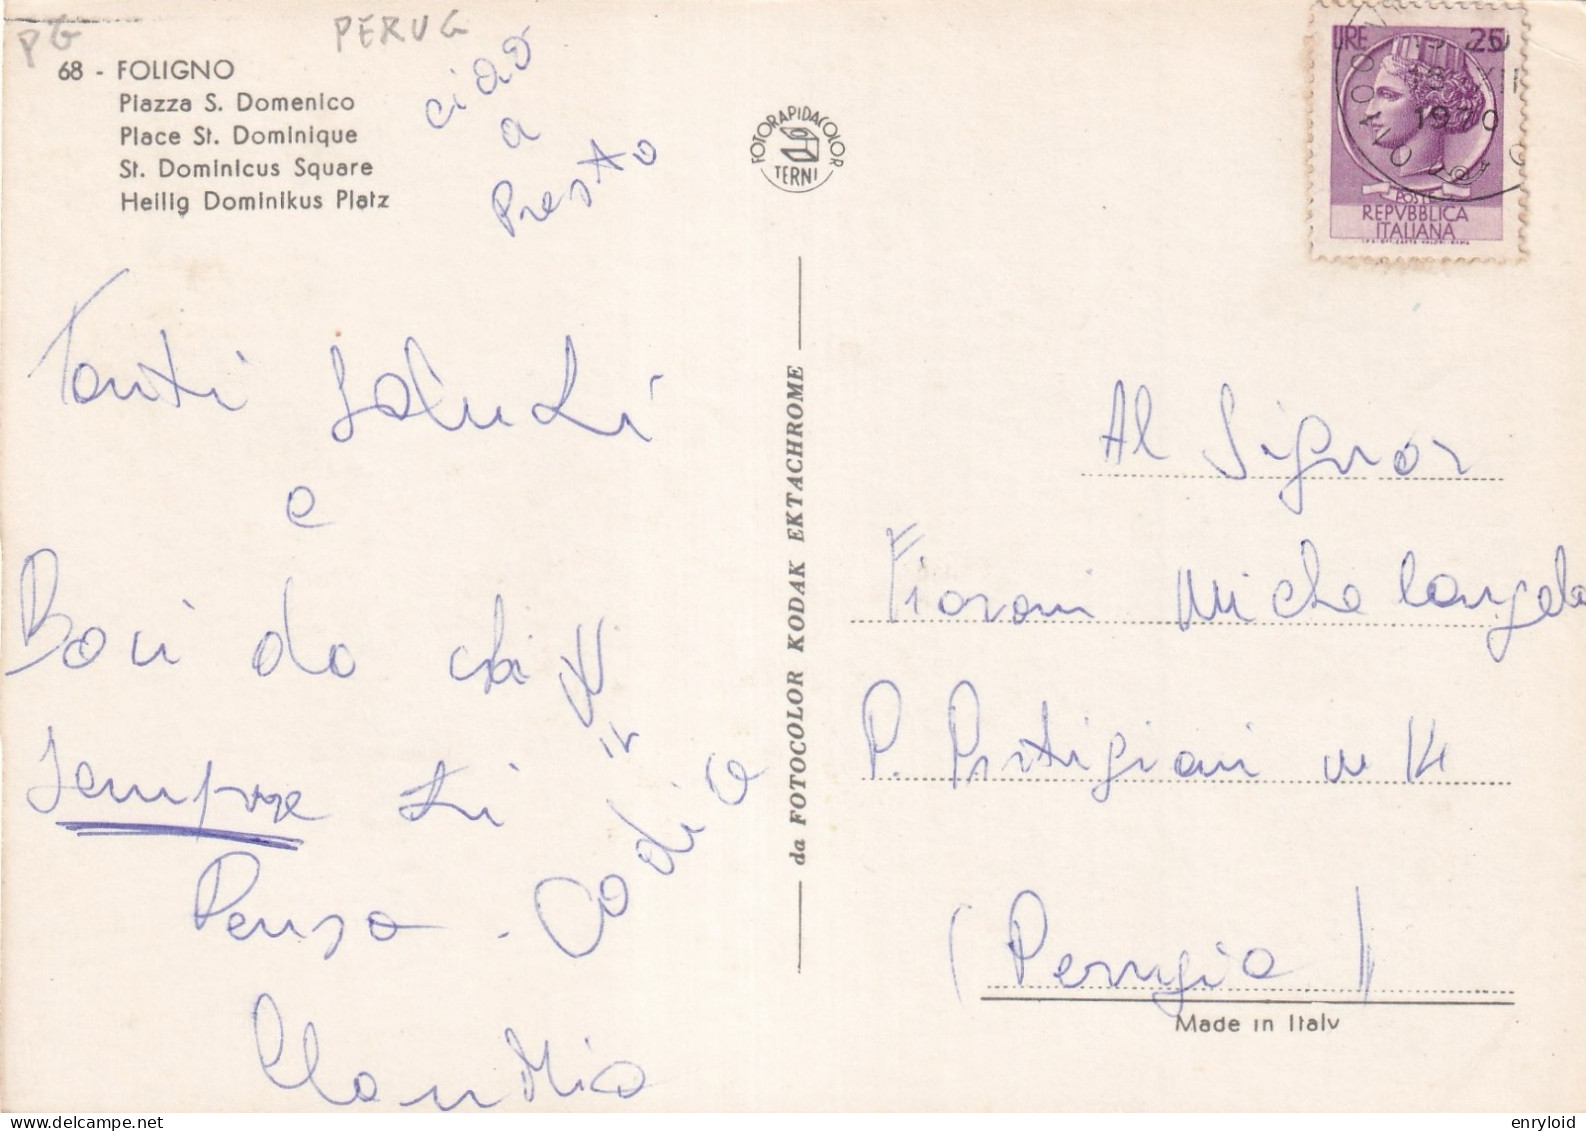 PG
PERUG
68 - FOLIGNO
Piazza S. Domenico
Place St. Dominique
St. Dominicus Square
Heilig Dominikus Platz
ciao
a
Presto
FOTORAPIDACOLOR
TERNI
LIRE 25
1970
POSTE
REPVBBLICA
ITALIANA
Tanti saluti
e
Baci da chi
sempre ti
Pensa.
Claudia
da FOTOCOLOR KODAK EKTACHROME
Al Signor
Fioroni Michelangelo
P. Partigiani n 14
(Perugia)
Made in Italy
enryloid | delcampe.net